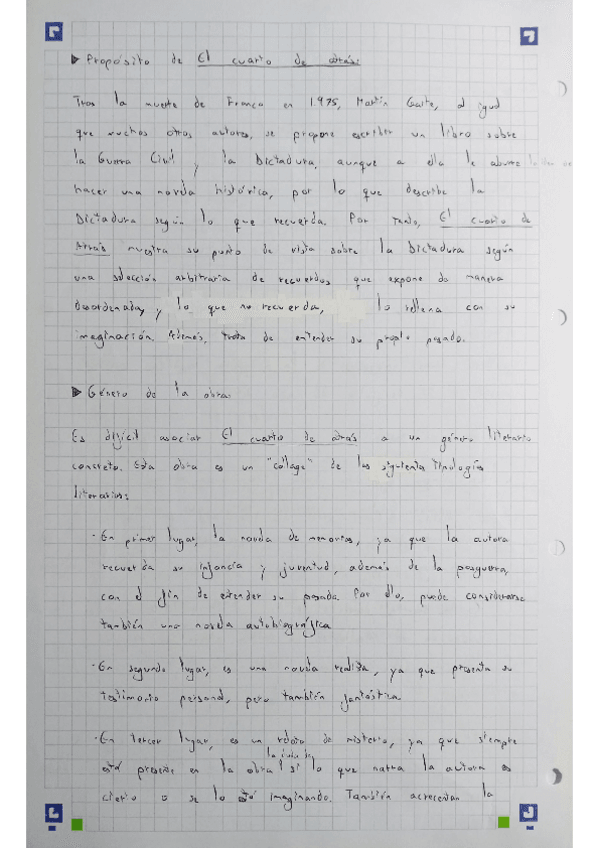 ▶ Propósito de El cuarto de atrás:
Tras la muerte de Franco en 1975, Martín Gaite, al igual
que muchos otros autores, se propone escribir un libro sobre
la Guerra Civil y la Dictadura, aunque a ella le aburre la idea de
hacer una novela histórica, por lo que describe la
Dictadura según lo que recuerda. Por tanto, El cuarto de
Atrás muestra su punto de vista sobre la Dictadura según
una selección arbitraria de recuerdos que expone de manera
desordenada, y lo que no recuerda, lo rellena con su
imaginación. Además, trata de entender su propio pasado.
▶ Género de la obra:
Es difícil asociar El cuarto de atrás a un género literario
concreto. Esta obra es un "collage" de las siguientes tipologías
literarias:
· En primer lugar, la novela de memorias, ya que la autora
recuerda su infancia y juventud, además de la posguerra,
con el fin de entender su pasado. Por ello, puede considerarse
también una novela autobiográfica.
· En segundo lugar, es una novela realista, ya que presenta su
testimonio personal, pero también fantástica.
· En tercer lugar, es un relato de misterio, ya que siempre
está presente en la obra la duda de si lo que narra la autora es
cierto o se lo está imaginando. También acrecentan la